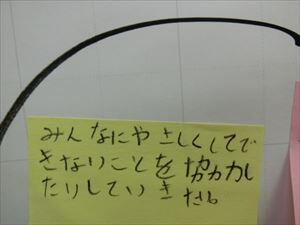 みんなにやさしくしてで
きないことを協力し
たりしていき
たい